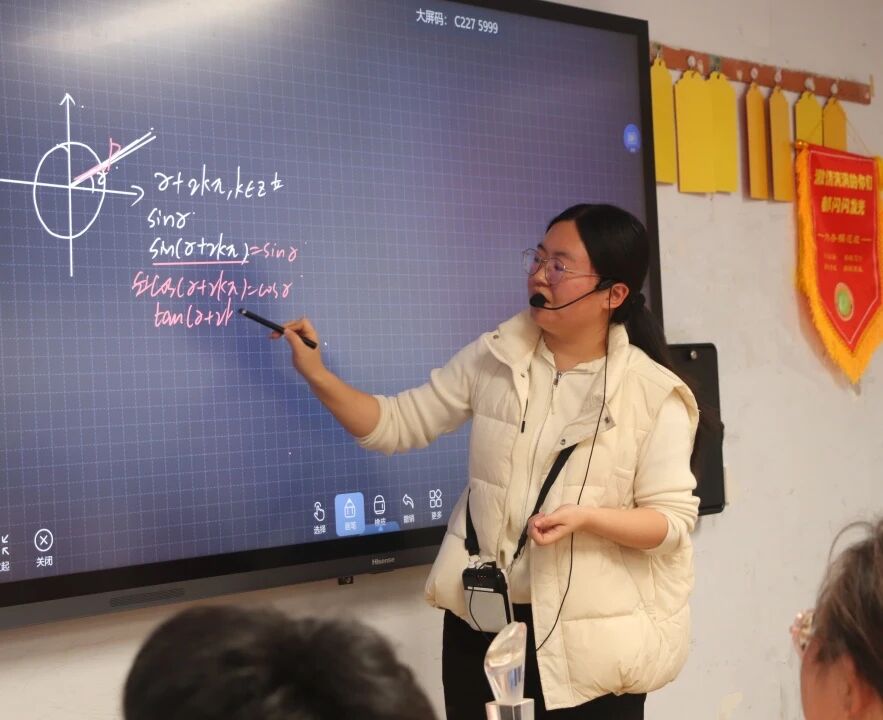 大屏码: C227 5999
α+2kπ, k∈Z
sinα
sin(α+2kπ)=sinα
cos(α+2kπ)=cosα
tan(α+2k
选择
画笔
橡皮
撤销
更多
关闭
Hisense
激情满满的你们
都闪闪发光